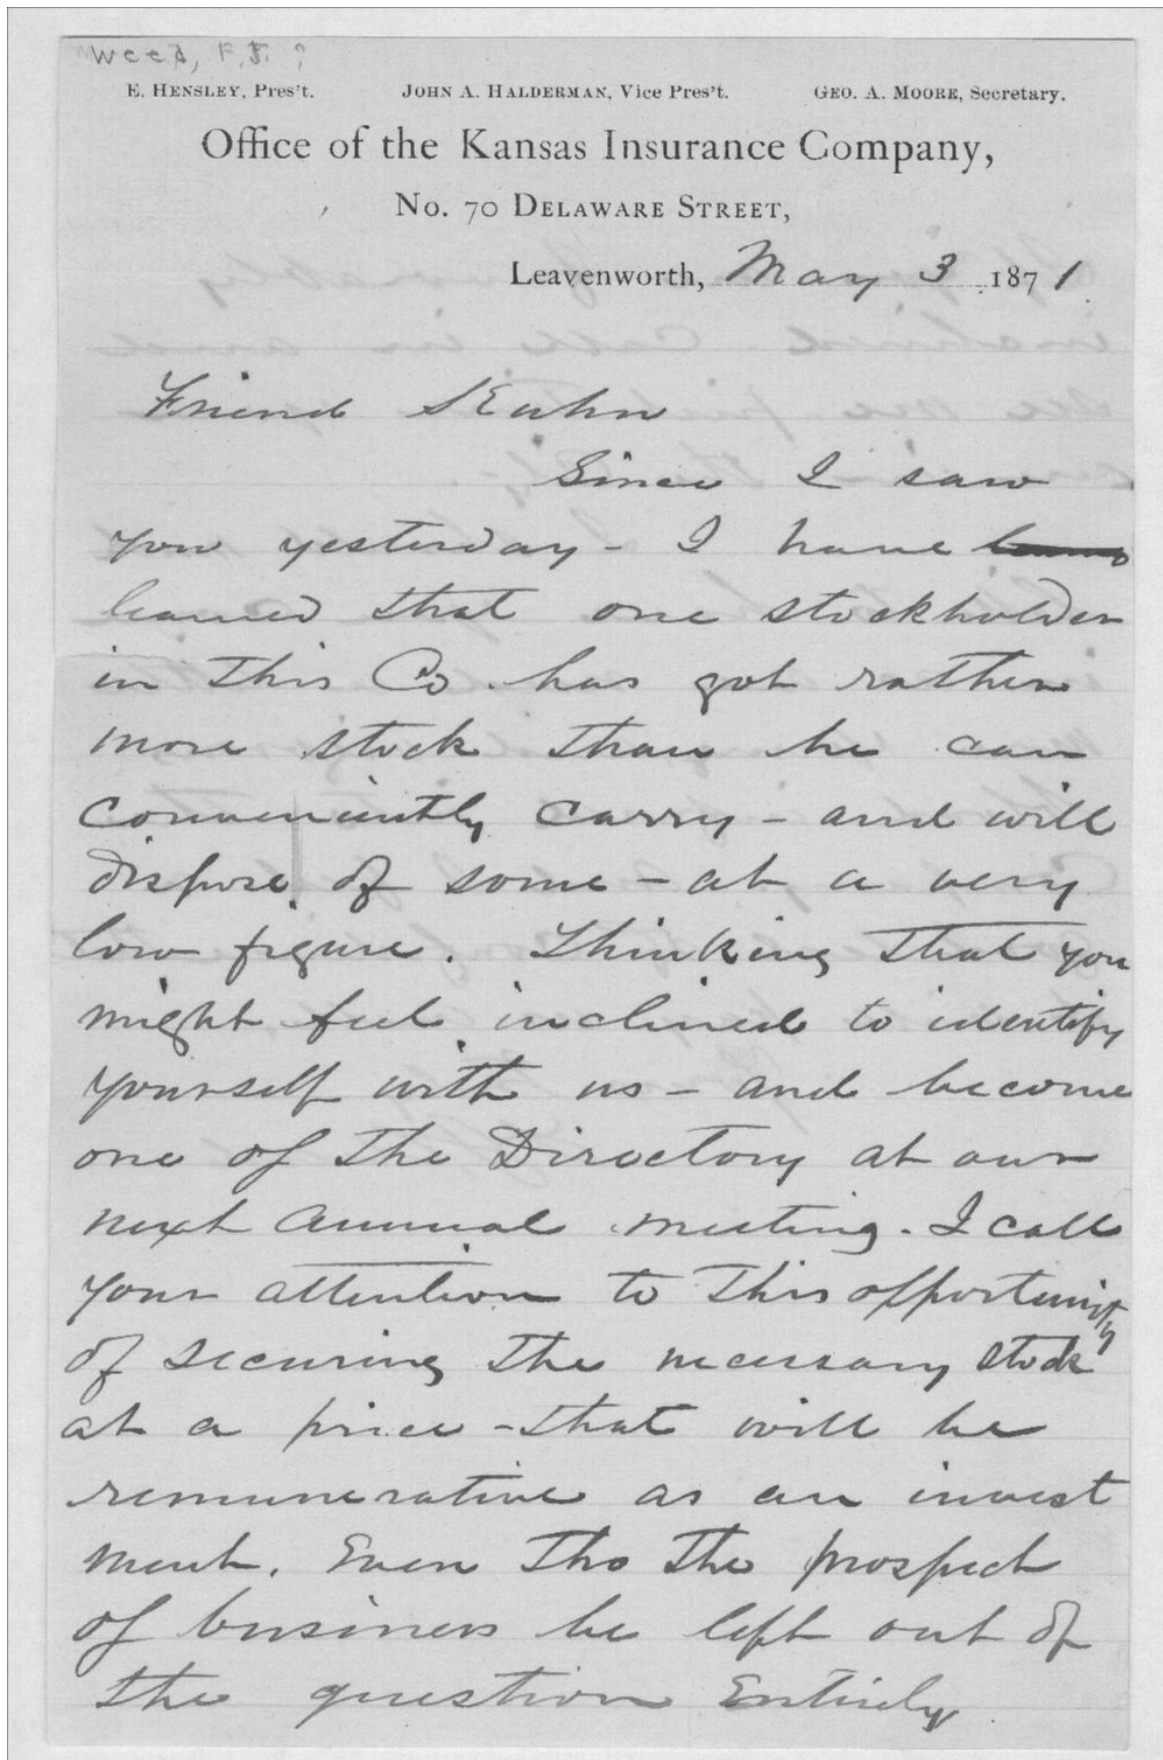 Weed, F. J. ?
E. Hensley, Pres't. John A. Halderman, Vice Pres't. Geo. A. Moore, Secretary.
Office of the Kansas Insurance Company,
No. 70 Delaware Street,
Leavenworth, May 3 1871.
Friend Kuhn
Since I saw
you yesterday - I have
learned that one stockholder
in this Co. has got rather
more stock than he can
conveniently carry - and will
dispose of some - at a very
low figure. Thinking that you
might feel inclined to identify
yourself with us - and become
one of the Directory at our
next annual meeting. I call
your attention to this opportunity
of securing the necessary stock
at a price - that will be
remunerative as an invest
ment. Even tho the prospect
of business be left out of
the question Entirely.